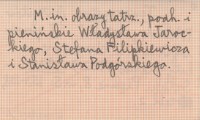 M. in. obrazy tatrz., podh. i
pienińskie Władysława Jaroc-
kiego, Stefana Filipkiewicza
i Stanisława Podgórskiego.